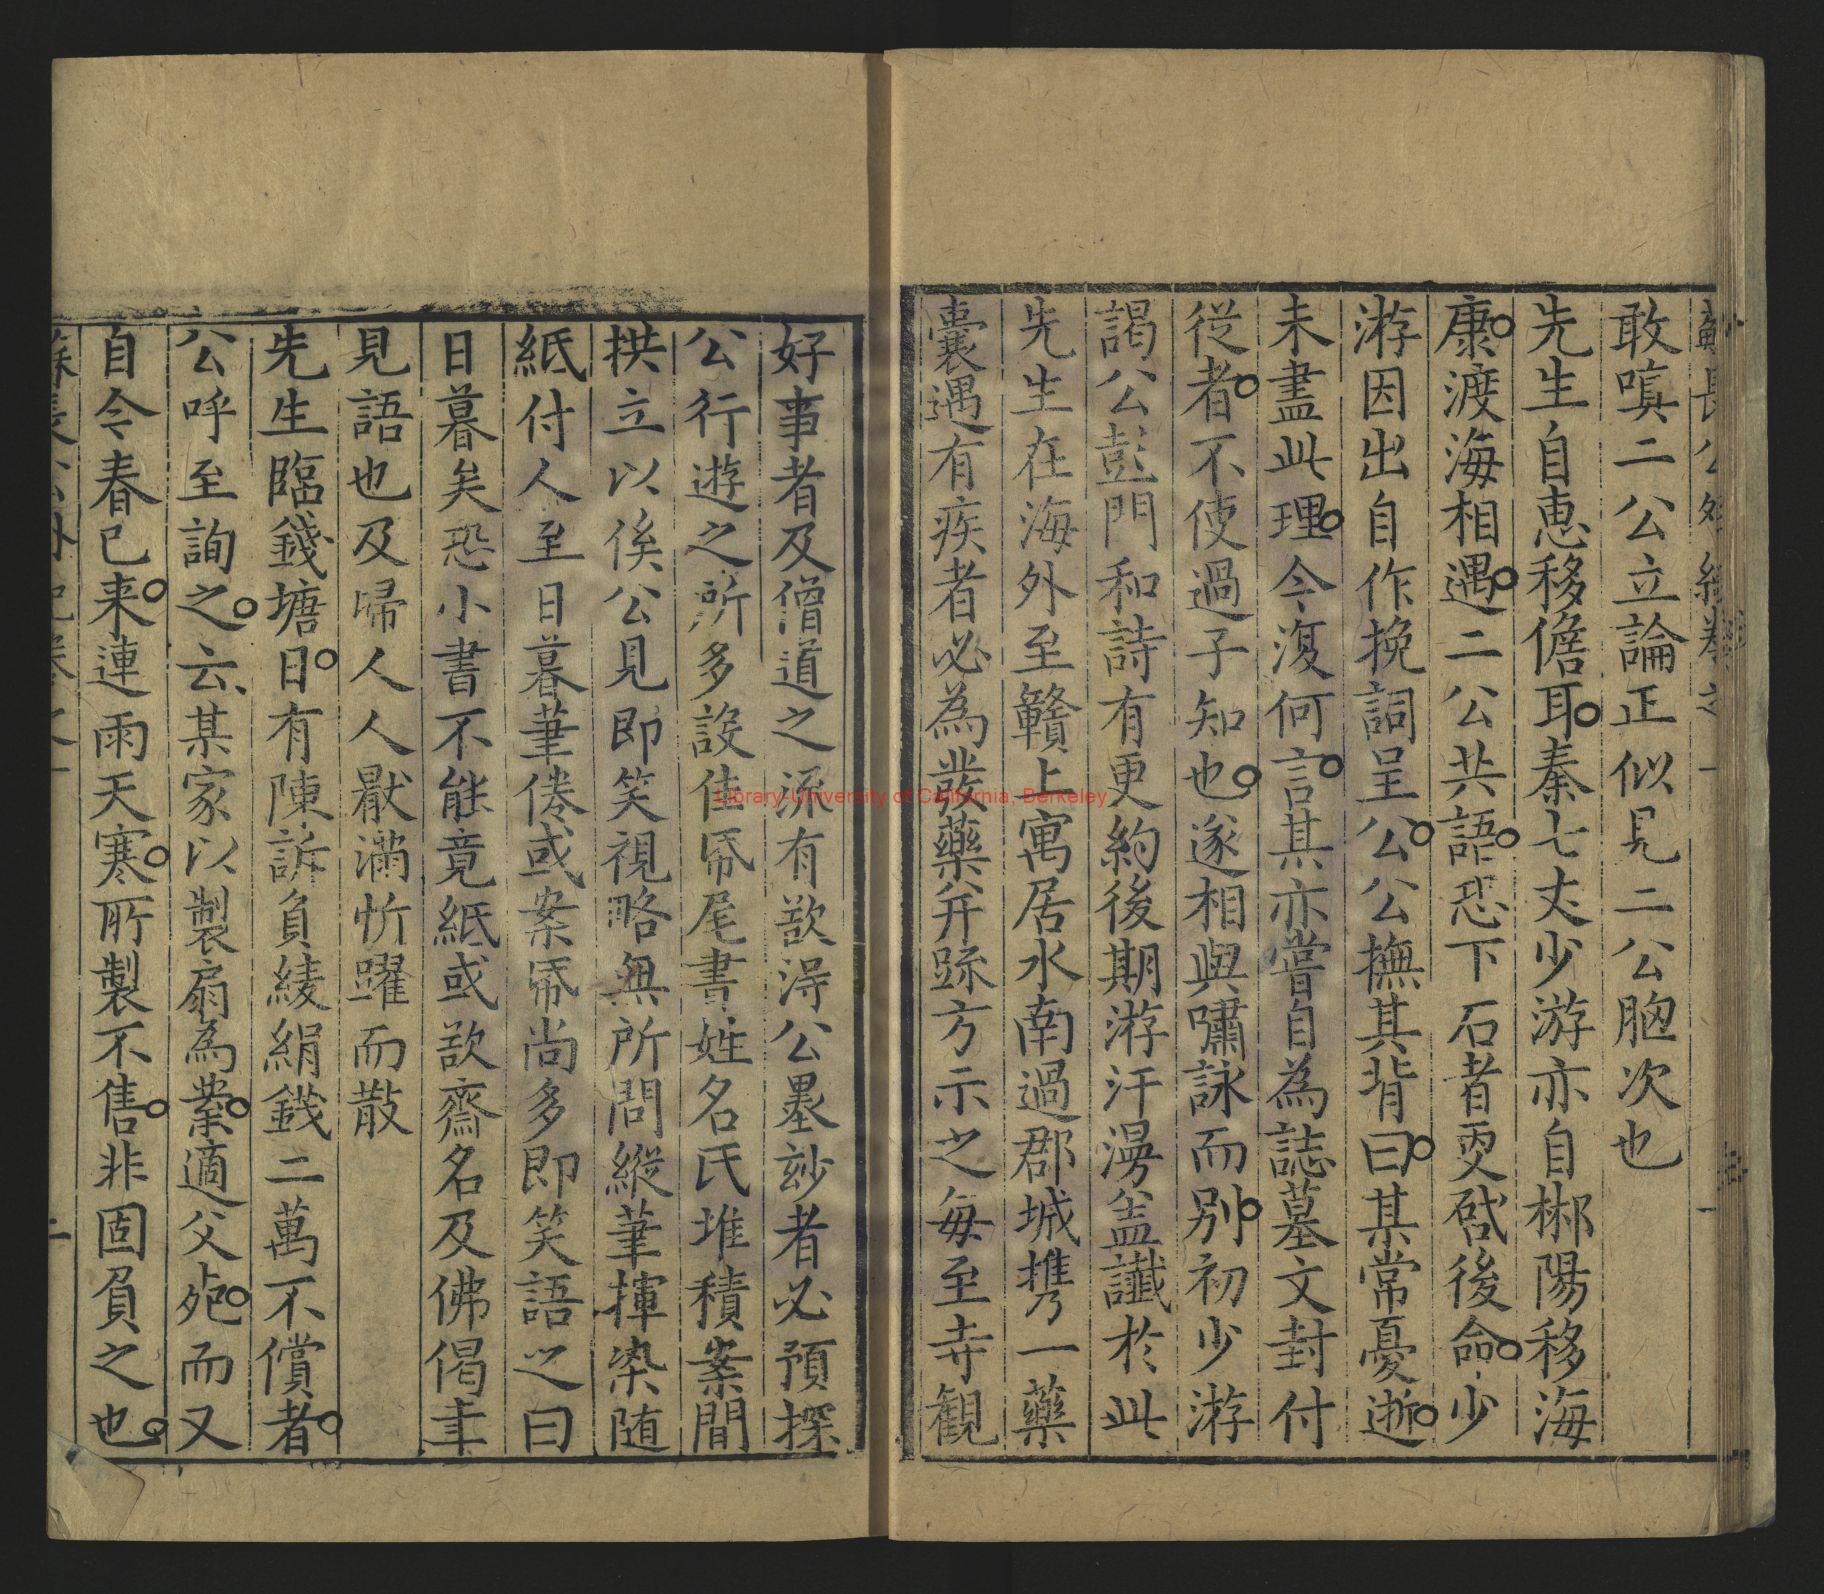 敢嗔二公立論正似見二公胷次也
先生自惠移儋耳秦七丈少游亦自郴陽移海
康渡海相遇二公共語恐下石者更啓後命少
游因出自作挽詞呈公公撫其背曰某常憂逝
未盡此理今復何言某亦嘗自為誌墓文封付
從者不使過子知也遂相與嘯詠而別初少游
謁公彭門和詩有更約後期游汗漫盖讖於此
先生在海外至贛上寓居水南過郡城攜一藥
囊遇有疾者必為發藥并疏方示之每至寺觀
好事者及僧道之流有欲得公墨妙者必預探
公行遊之所多設佳帋尾書姓名氏堆積案間
拱立以俟公見即笑視略無所問縱筆揮染随
紙付人至日暮筆倦或案帋尚多即笑語之曰
日暮矣恐小書不能竟紙或欲齋名及佛偈幸
見語也及歸人人厭滿忻躍而散
先生臨錢塘日有陳訴負綾絹錢二萬不償者
公呼至詢之云某家以製扇為業適父死而又
自今春已来連雨天寒所製不售非固負之也
Library University of California, Berkeley